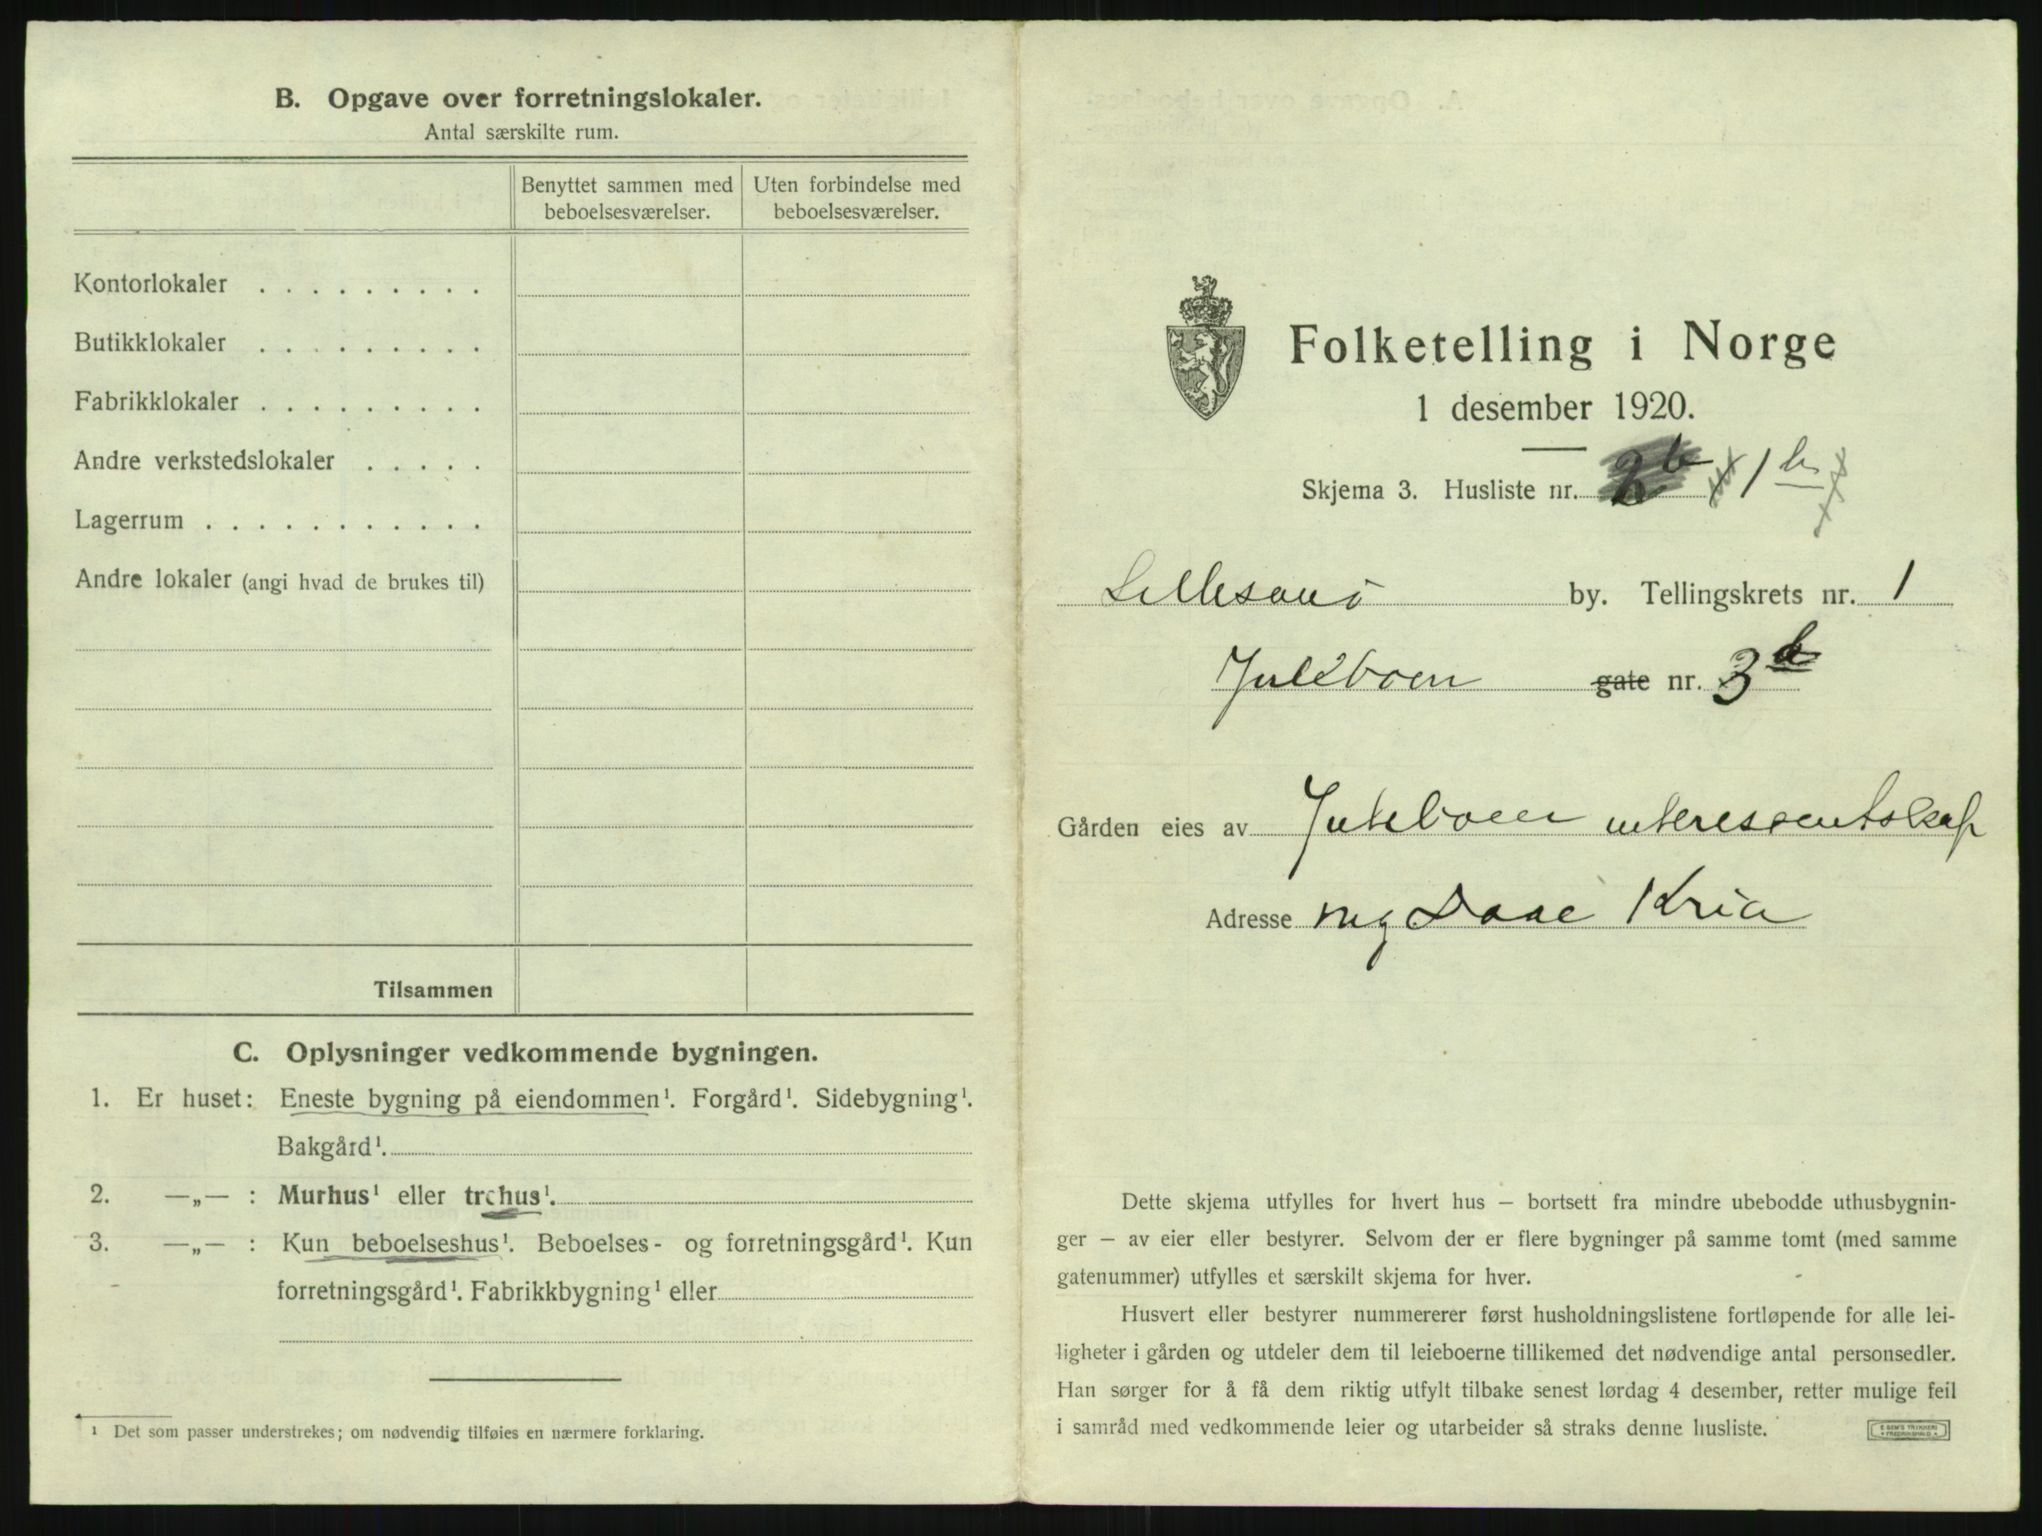 B. Opgave over forretningslokaler.
Antal særskilte rum.
Benyttet sammen med beboelsesværelser.
Uten forbindelse med beboelsesværelser.
Kontorlokaler . . . . . . . . .
Butikklokaler . . . . . . . . .
Fabrikklokaler . . . . . . . . .
Andre verkstedslokaler . . . . .
Lagerrum . . . . . . . . . . .
Andre lokaler (angi hvad de brukes til)
Tilsammen
C. Oplysninger vedkommende bygningen.
1. Er huset: Eneste bygning på eiendommen¹. Forgård¹. Sidebygning¹.
Bakgård¹.
2. —„— : Murhus¹ eller trehus¹.
3. —„— : Kun beboelseshus¹. Beboelses- og forretningsgård¹. Kun
forretningsgård¹. Fabrikkbygning¹ eller
¹ Det som passer understrekes; om nødvendig tilføies en nærmere forklaring.
Folketelling i Norge
1 desember 1920.
Skjema 3. Husliste nr. 2b 1b
Lillesand by. Tellingskrets nr. 1
Juleboen gate nr. 3b
Gården eies av Juleboen interessentskap
Adresse Daae Kria
Dette skjema utfylles for hvert hus — bortsett fra mindre ubebodde uthusbygnin-
ger — av eier eller bestyrer. Selvom der er flere bygninger på samme tomt (med samme
gatenummer) utfylles et særskilt skjema for hver.
Husvert eller bestyrer nummererer først husholdningslistene fortløpende for alle lei-
ligheter i gården og utdeler dem til leieboerne tillikemed det nødvendige antal personsedler.
Han sørger for å få dem riktig utfylt tilbake senest lørdag 4 desember, retter mulige feil
i samråd med vedkommende leier og utarbeider så straks denne husliste.